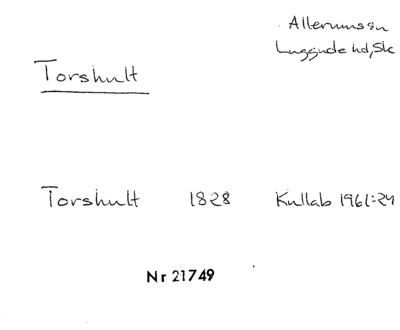 Allerums sn
Luggude hd, Sk
Torshult
Torshult 1828 Kullab 1961:24
Nr 21749